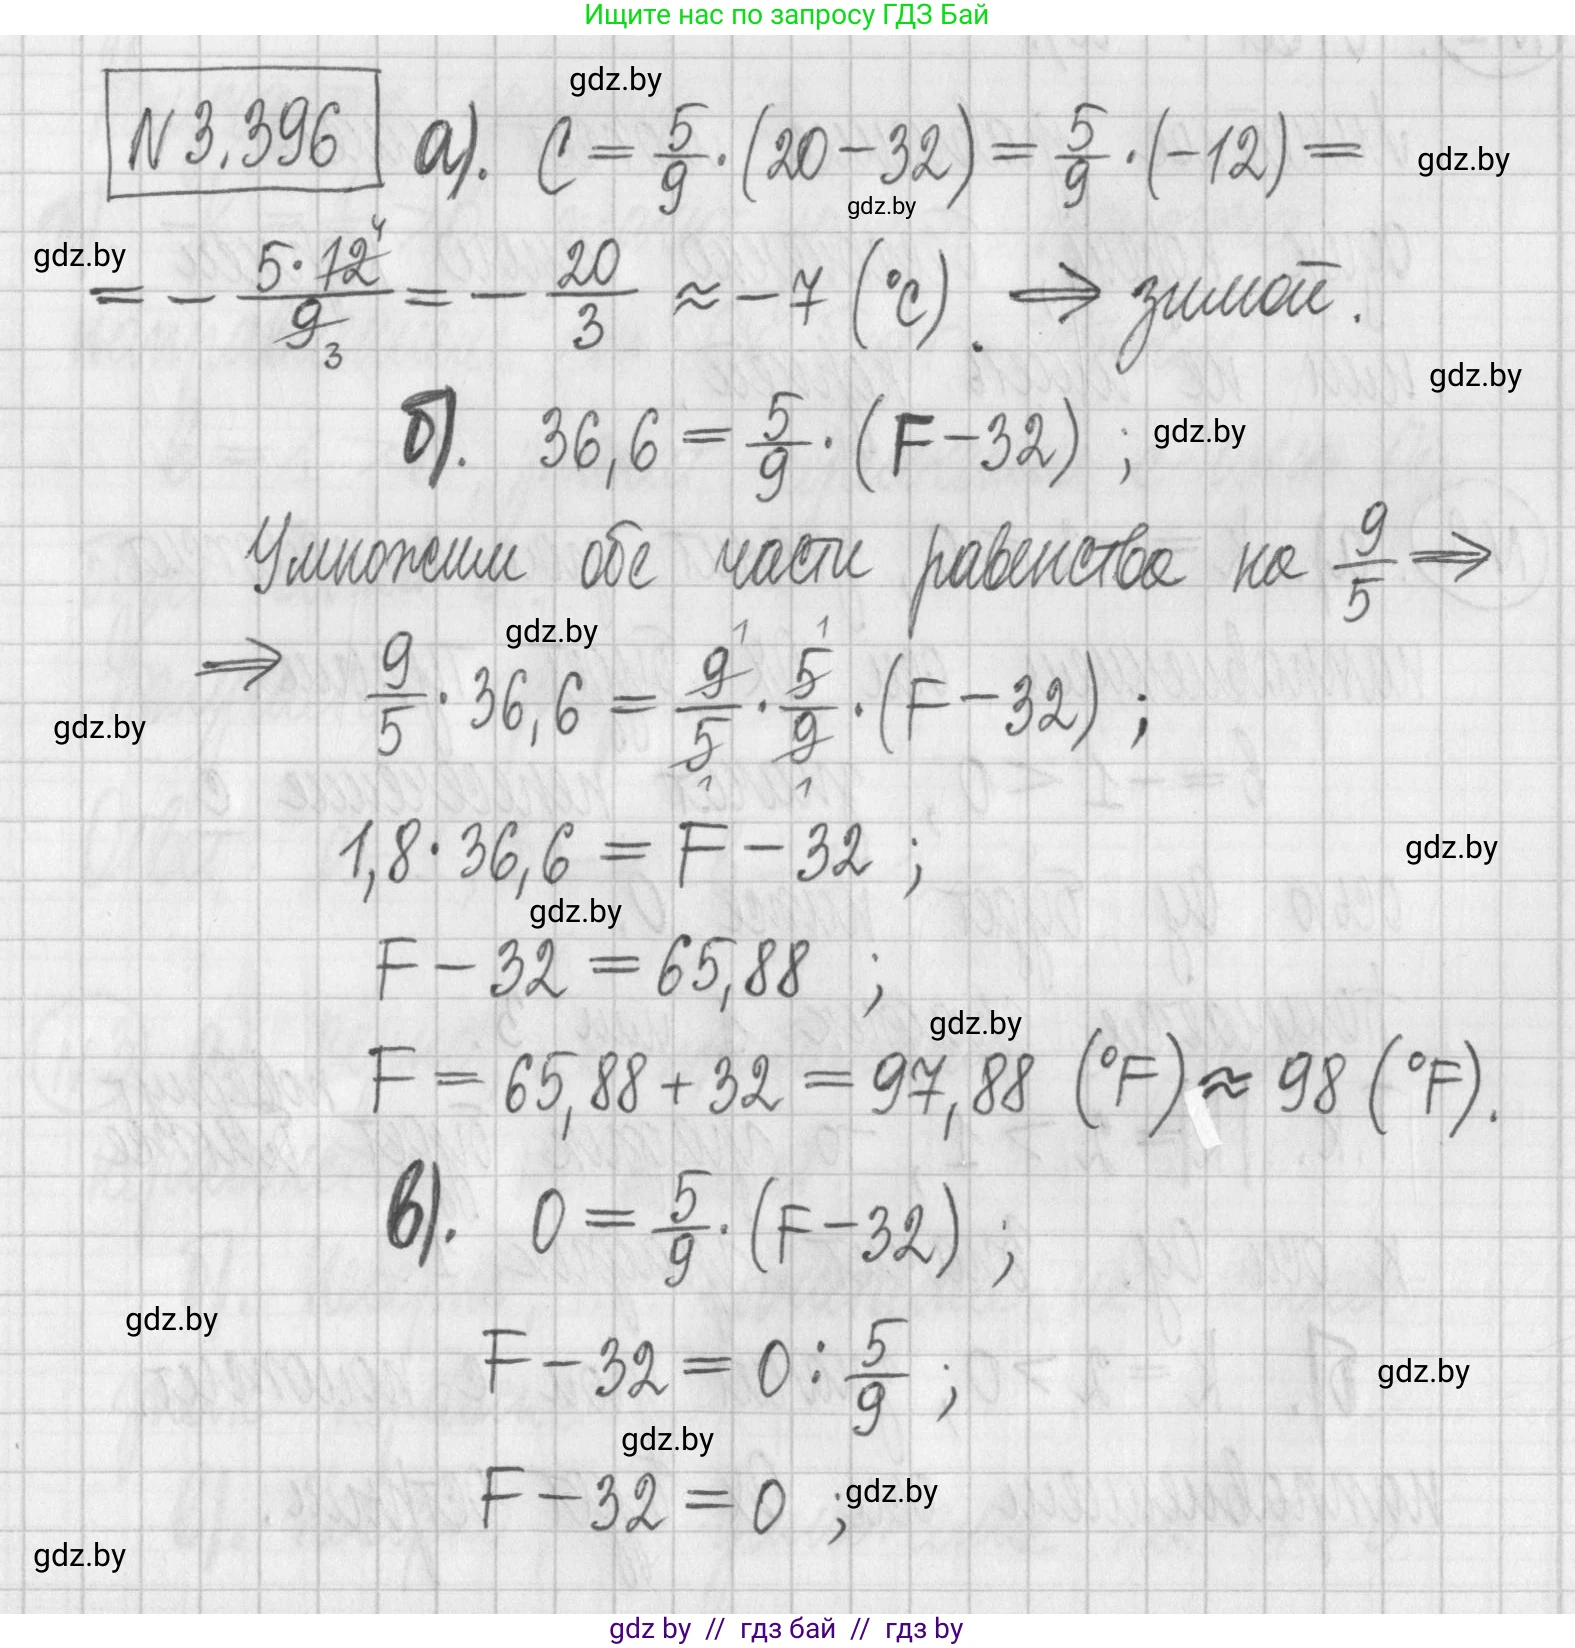 Ищите нас по запросу ГДЗ Бай
gdz.by
N 3.396 а). C = 5/9 · (20 − 32) = 5/9 · (−12) =
gdz.by
gdz.by
gdz.by
= − 5·12 4 / 9 3 = − 20/3 ≈ −7 (°C). ⟹ зимой.
gdz.by
б). 36,6 = 5/9 · (F − 32) ;
gdz.by
Умножим обе части равенства на 9/5 ⟹
gdz.by
⟹ 9/5 · 36,6 = 9 1 / 5 1 · 5 1 / 9 1 · (F − 32) ;
gdz.by
1,8 · 36,6 = F − 32 ;
gdz.by
gdz.by
F − 32 = 65,88 ;
gdz.by
F = 65,88 + 32 = 97,88 (°F) ≈ 98 (°F).
в). 0 = 5/9 · (F − 32) ;
gdz.by
F − 32 = 0 : 5/9 ;
gdz.by
gdz.by
F − 32 = 0 ;
gdz.by
gdz.by
gdz by // гдз бай // gdz by